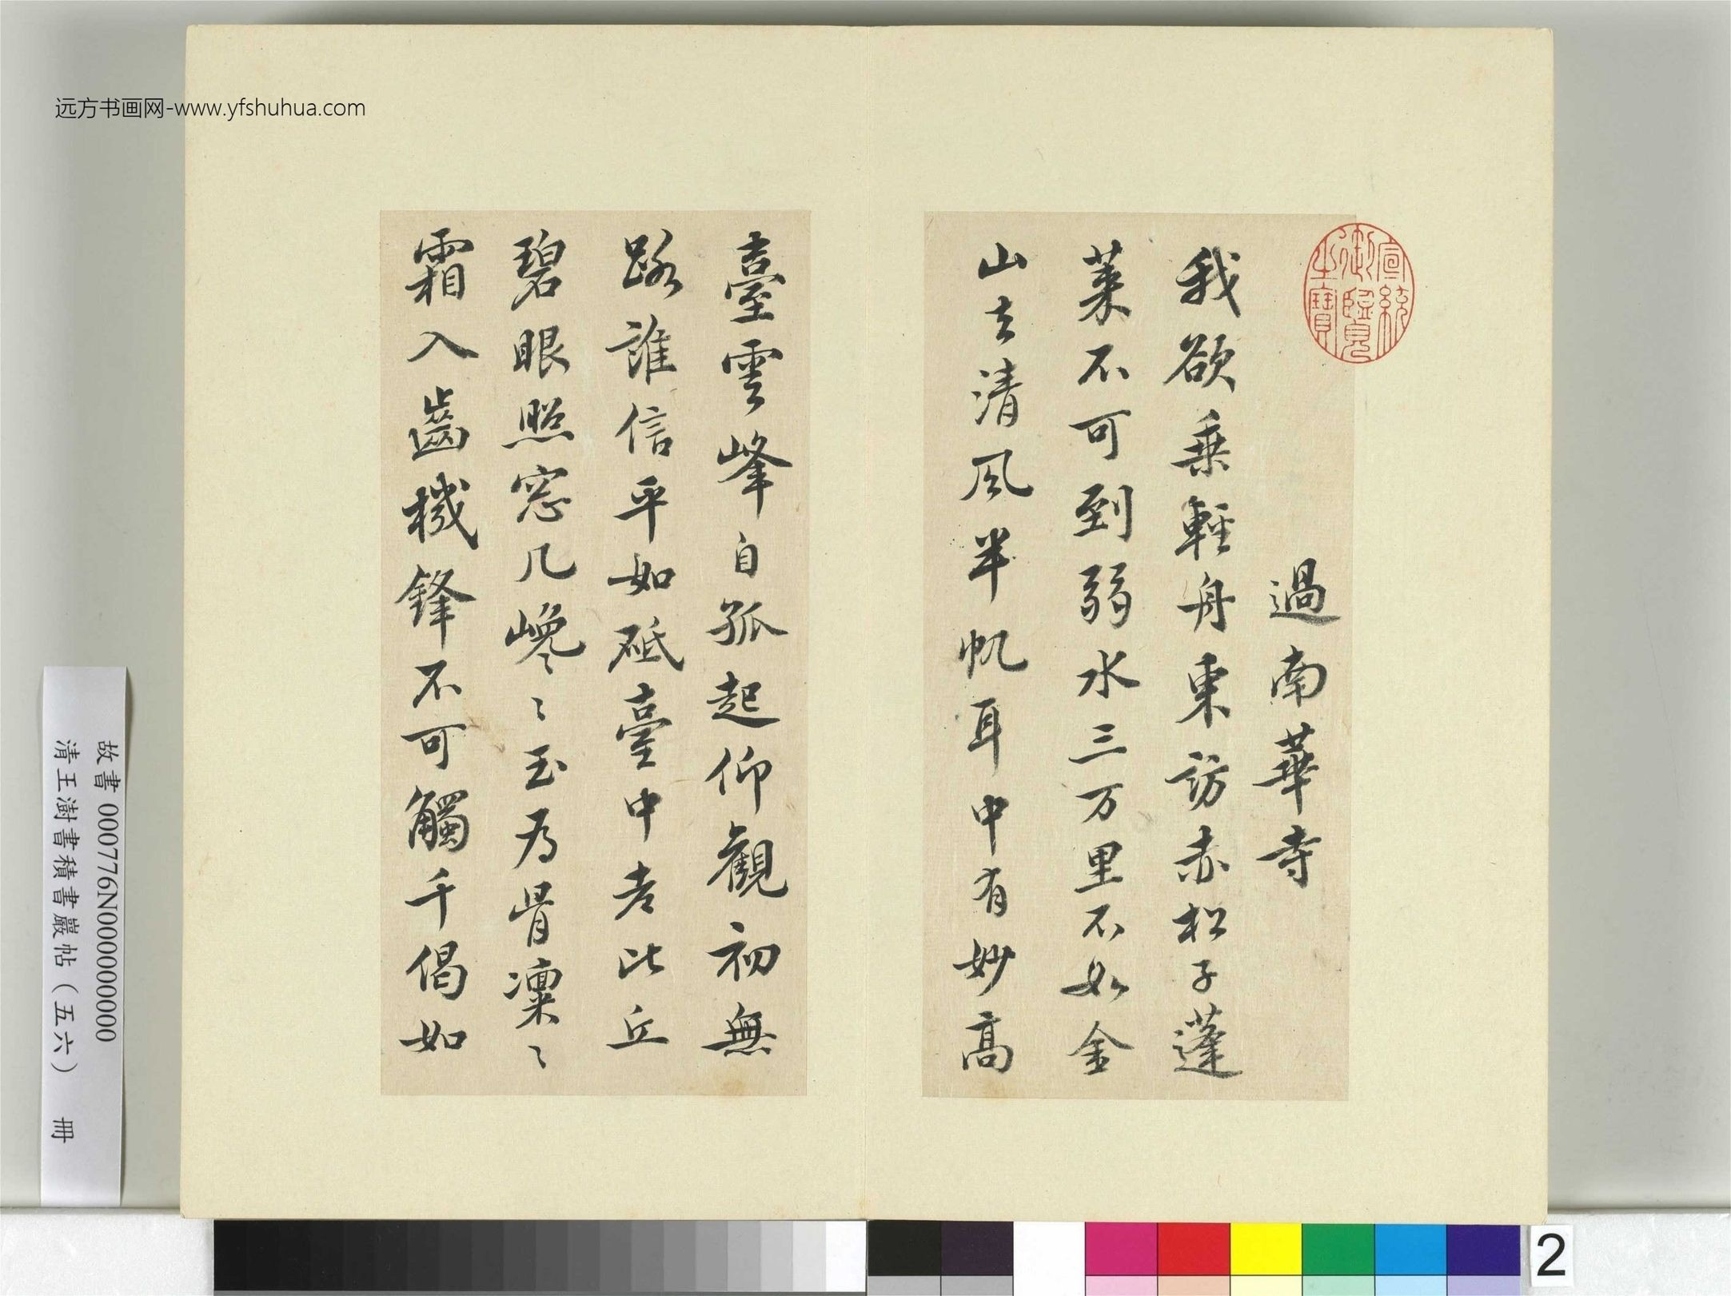 过南華寺
我欲乗輕舟東訪赤松子蓬
莱不可到弱水三万里不如金
山去清风半帆耳中有妙高
臺雲峰自孤起仰觀初無
路誰信平如砥臺中老比丘
碧眼照窓几巉〻玉為骨凜〻
霜入齒機鋒不可觸千偈如
宣統
御覽
之寶
远方书画网-www.yfshuhua.com
故書 000776N000000000
清王澍書積書巖帖（五六） 冊
2